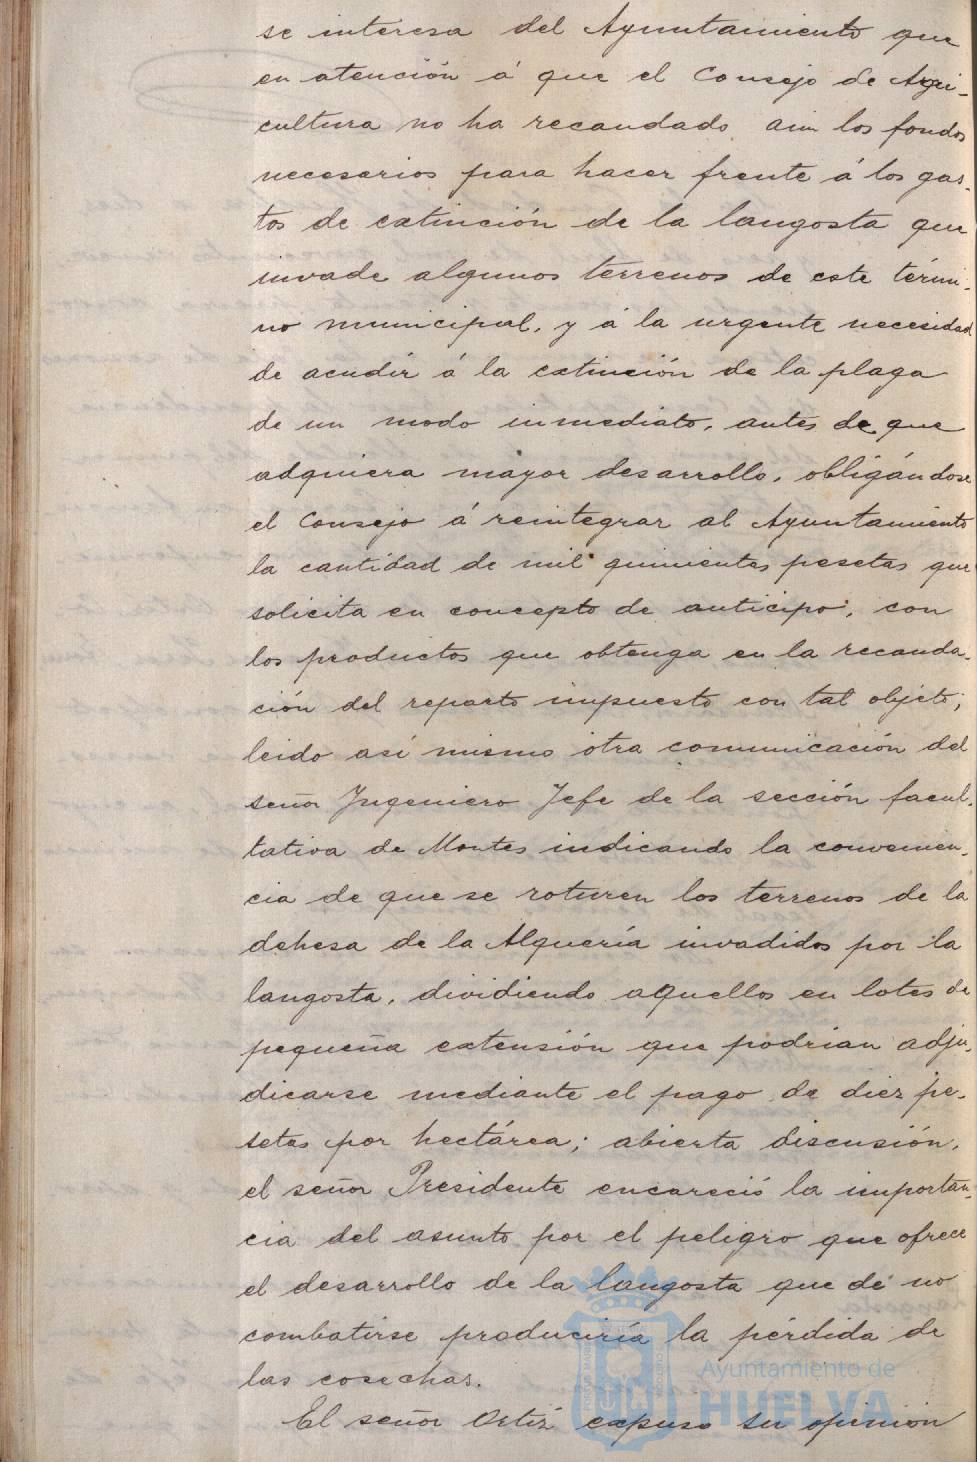 se interesa del Ayuntamiento que
en atención á que el Consejo de Agri-
cultura no ha recaudado aun los fondos
necesarios para hacer frente á los gas-
tos de extinción de la langosta que
invade algunos terrenos de este térmi-
no municipal, y á la urgente necesidad
de acudir á la extinción de la plaga
de un modo inmediato, antes de que
adquiera mayor desarrollo, obligándose
el Consejo á reintegrar al Ayuntamiento
la cantidad de mil quinientas pesetas que
solicita en concepto de anticipo, con
los productos que obtenga en la recauda-
ción del reparto impuesto con tal objeto;
leido así mismo otra comunicación del
señor Ingeniero Jefe de la sección facul-
tativa de Montes indicando la convenien-
cia de que se roturen los terrenos de la
dehesa de la Alquería invadidos por la
langosta, dividiendo aquellos en lotes de
pequeña extensión que podrían adju-
dicarse mediante el pago de diez pe-
setas por hectárea; abierta discusión,
el señor Presidente encareció la importan-
cia del asunto por el peligro que ofrece
el desarrollo de la langosta que de no
combatirse produciría la pérdida de
las cosechas.
El señor Ortiz expuso su opinión
Ayuntamiento de
HUELVA